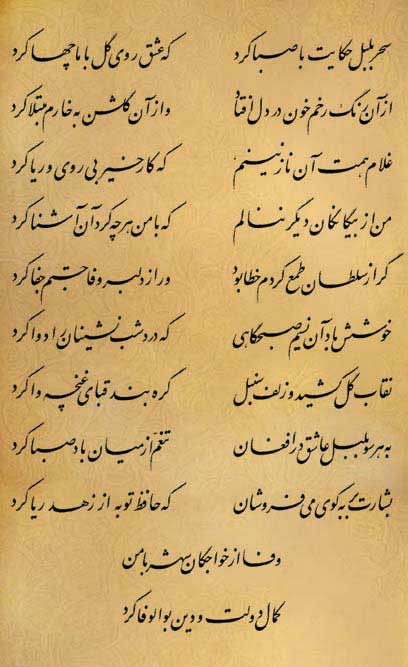 سحر بلبل حکایت با صبا کرد که عشق روی گل با ما چها کرد
از آن رنگ رخم خون در دل افتاد و از آن گلشن به خارم مبتلا کرد
غلام همت آن نازنینم که کار خیر بی روی و ریا کرد
من از بیگانگان دیگر ننالم که با من هرچه کرد آن آشنا کرد
گر از سلطان طمع کردم خطا بود ور از دلبر وفا جستم جفا کرد
خوشش باد آن نسیم صبحگاهی که درد شب نشینان را دوا کرد
نقاب گل کشید و زلف سنبل گره بند قبای غنچه وا کرد
به هر سو بلبل عاشق در افغان تنعم از میان باد صبا کرد
بشارت بر به کوی می فروشان که حافظ توبه از زهد ریا کرد
وفا از خواجگان شهر با من
کمال دولت و دین بوالوفا کرد